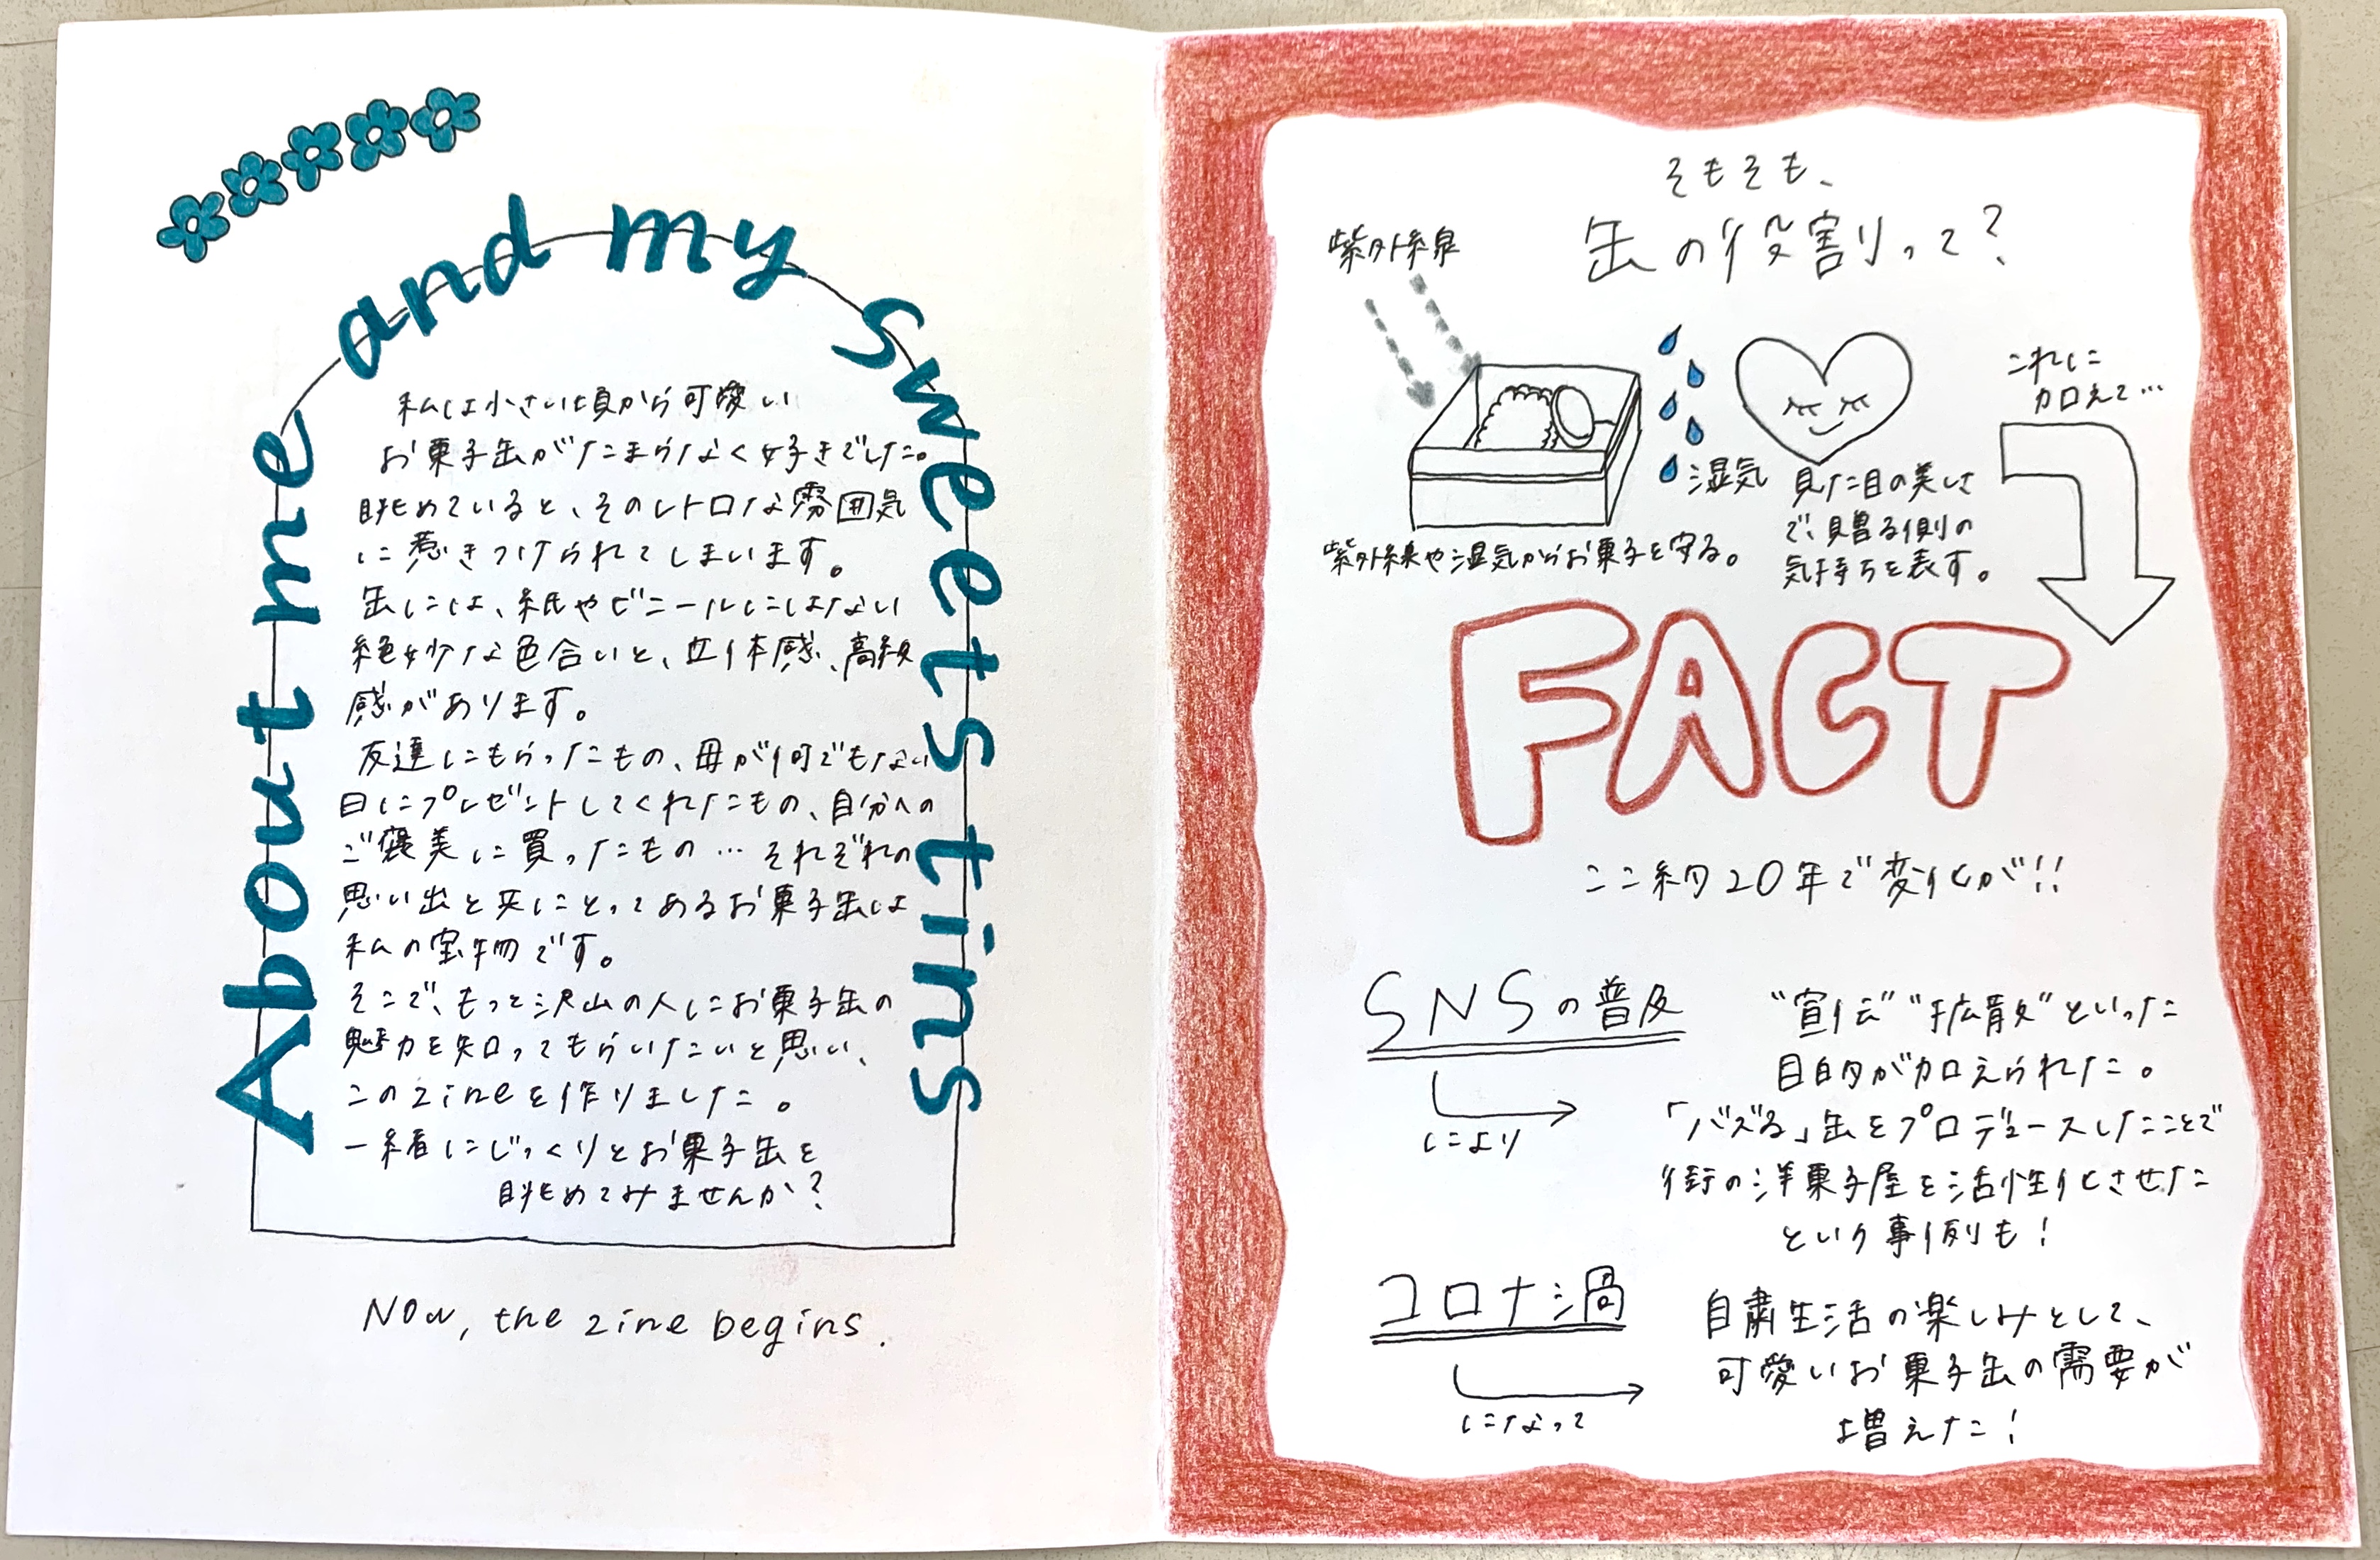 About me and my sweets tins
私は小さい頃から可愛い
お菓子缶がたまらなく好きでした。
眺めていると、そのレトロな雰囲気
に惹きつけられてしまいます。
缶には、紙やビニールにはない
絶妙な色合いと、立体感、高級
感があります。
友達にもらったもの、母が何でもない
日にプレゼントしてくれたもの、自分への
ご褒美に買ったもの…それぞれの
思い出と共にとってあるお菓子缶は
私の宝物です。
そこで、もっと沢山の人にお菓子缶の
魅力を知ってもらいたいと思い、
このzineを作りました。
一緒にじっくりとお菓子缶を
眺めてみませんか？
Now, the zine begins.
そもそも、
缶の役割って？
紫外線
湿気
紫外線や湿気からお菓子を守る。
見た目の美しさ
で、贈る側の
気持ちを表す。
これに
加えて…
FACT
ここ約20年で変化が!!
SNSの普及
により
"宣伝""拡散"といった
目的が加えられた。
「バズる」缶をプロデュースしたことで
街の洋菓子屋を活性化させた
という事例も！
コロナ渦
になって
自粛生活の楽しみとして、
可愛いお菓子缶の需要が
増えた！